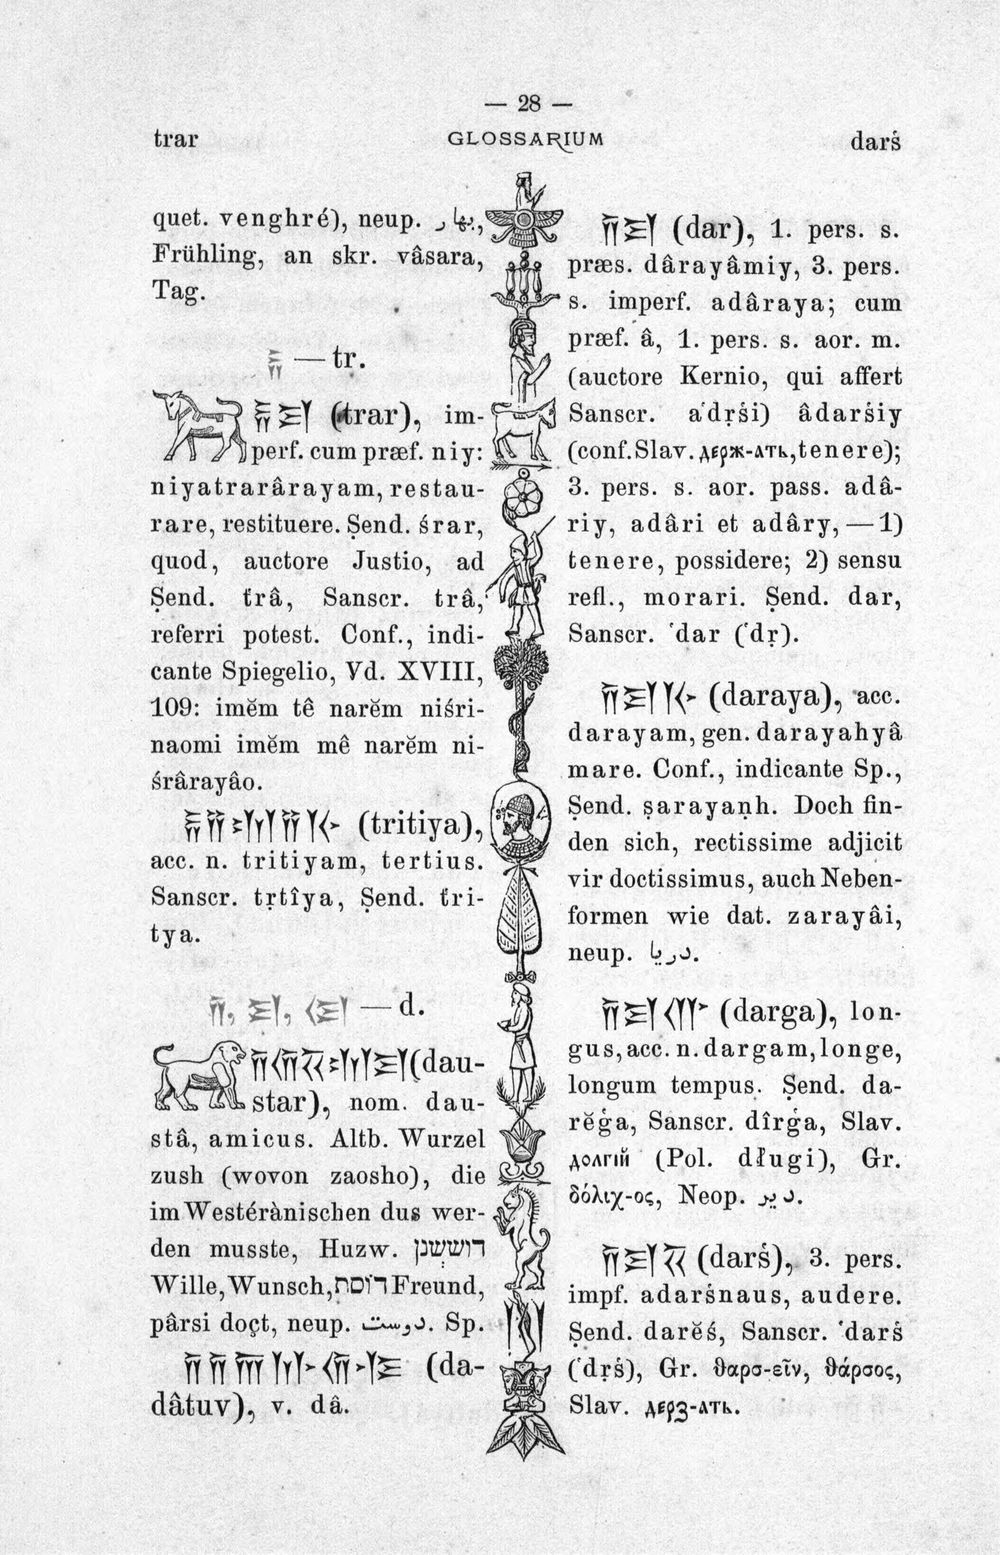 — 28 —
trar GLOSSARIUM darś
quet. venghré), neup. بهار,
Frühling, an skr. vâsara,
Tag.
𐎰 — tr.
(trar), im-
perf. cum præf. niy:
niyatrarârayam, restau-
rare, restituere. Ṣend. śrar,
quod, auctore Justio, ad
Ṣend. trâ, Sanscr. trâ,
referri potest. Conf., indi-
cante Spiegelio, Vd. XVIII,
109: imĕm tê narĕm niśri-
naomi imĕm mê narĕm ni-
śrârayâo.
(tritiya),
acc. n. tritiyam, tertius.
Sanscr. tṛtîya, Ṣend. tri-
tya.
— d.
(dau-
star), nom. dau-
stâ, amicus. Altb. Wurzel
zush (wovon zaosho), die
im Westérànischen dus wer-
den musste, Huzw. דוששןן
Wille, Wunsch, דוסת Freund,
pârsi doçt, neup. دوست. Sp.
(da-
dâtuv), v. dâ.
𐎭𐎼 (dar), 1. pers. s.
præs. dârayâmiy, 3. pers.
s. imperf. adâraya; cum
præf. â, 1. pers. s. aor. m.
(auctore Kernio, qui affert
Sanscr. a῾dṛśi) âdarśiy
(conf. Slav. держ-ать, tenere);
3. pers. s. aor. pass. adâ-
riy, adâri et adâry, — 1)
tenere, possidere; 2) sensu
refl., morari. Ṣend. dar,
Sanscr. ῾dar (῾dṛ).
𐎭𐎼𐎹 (daraya), acc.
darayam, gen. darayahyâ
mare. Conf., indicante Sp.,
Ṣend. ṣarayaṇh. Doch fin-
den sich, rectissime adjicit
vir doctissimus, auch Neben-
formen wie dat. zarayâi,
neup. دريا.
𐎭𐎼𐎥 (darga), lon-
gus, acc. n. dargam, longe,
longum tempus. Ṣend. da-
rĕġa, Sanscr. dîrġa, Slav.
долгій (Pol. długi), Gr.
δόλιχ-ος, Neop. دير.
𐎭𐎼𐏁 (darś), 3. pers.
impf. adarśnaus, audere.
Ṣend. darĕś, Sanscr. ῾darś
(῾dṛś), Gr. ϑαρσ-εῖν, ϑάρσος,
Slav. дерз-ать.